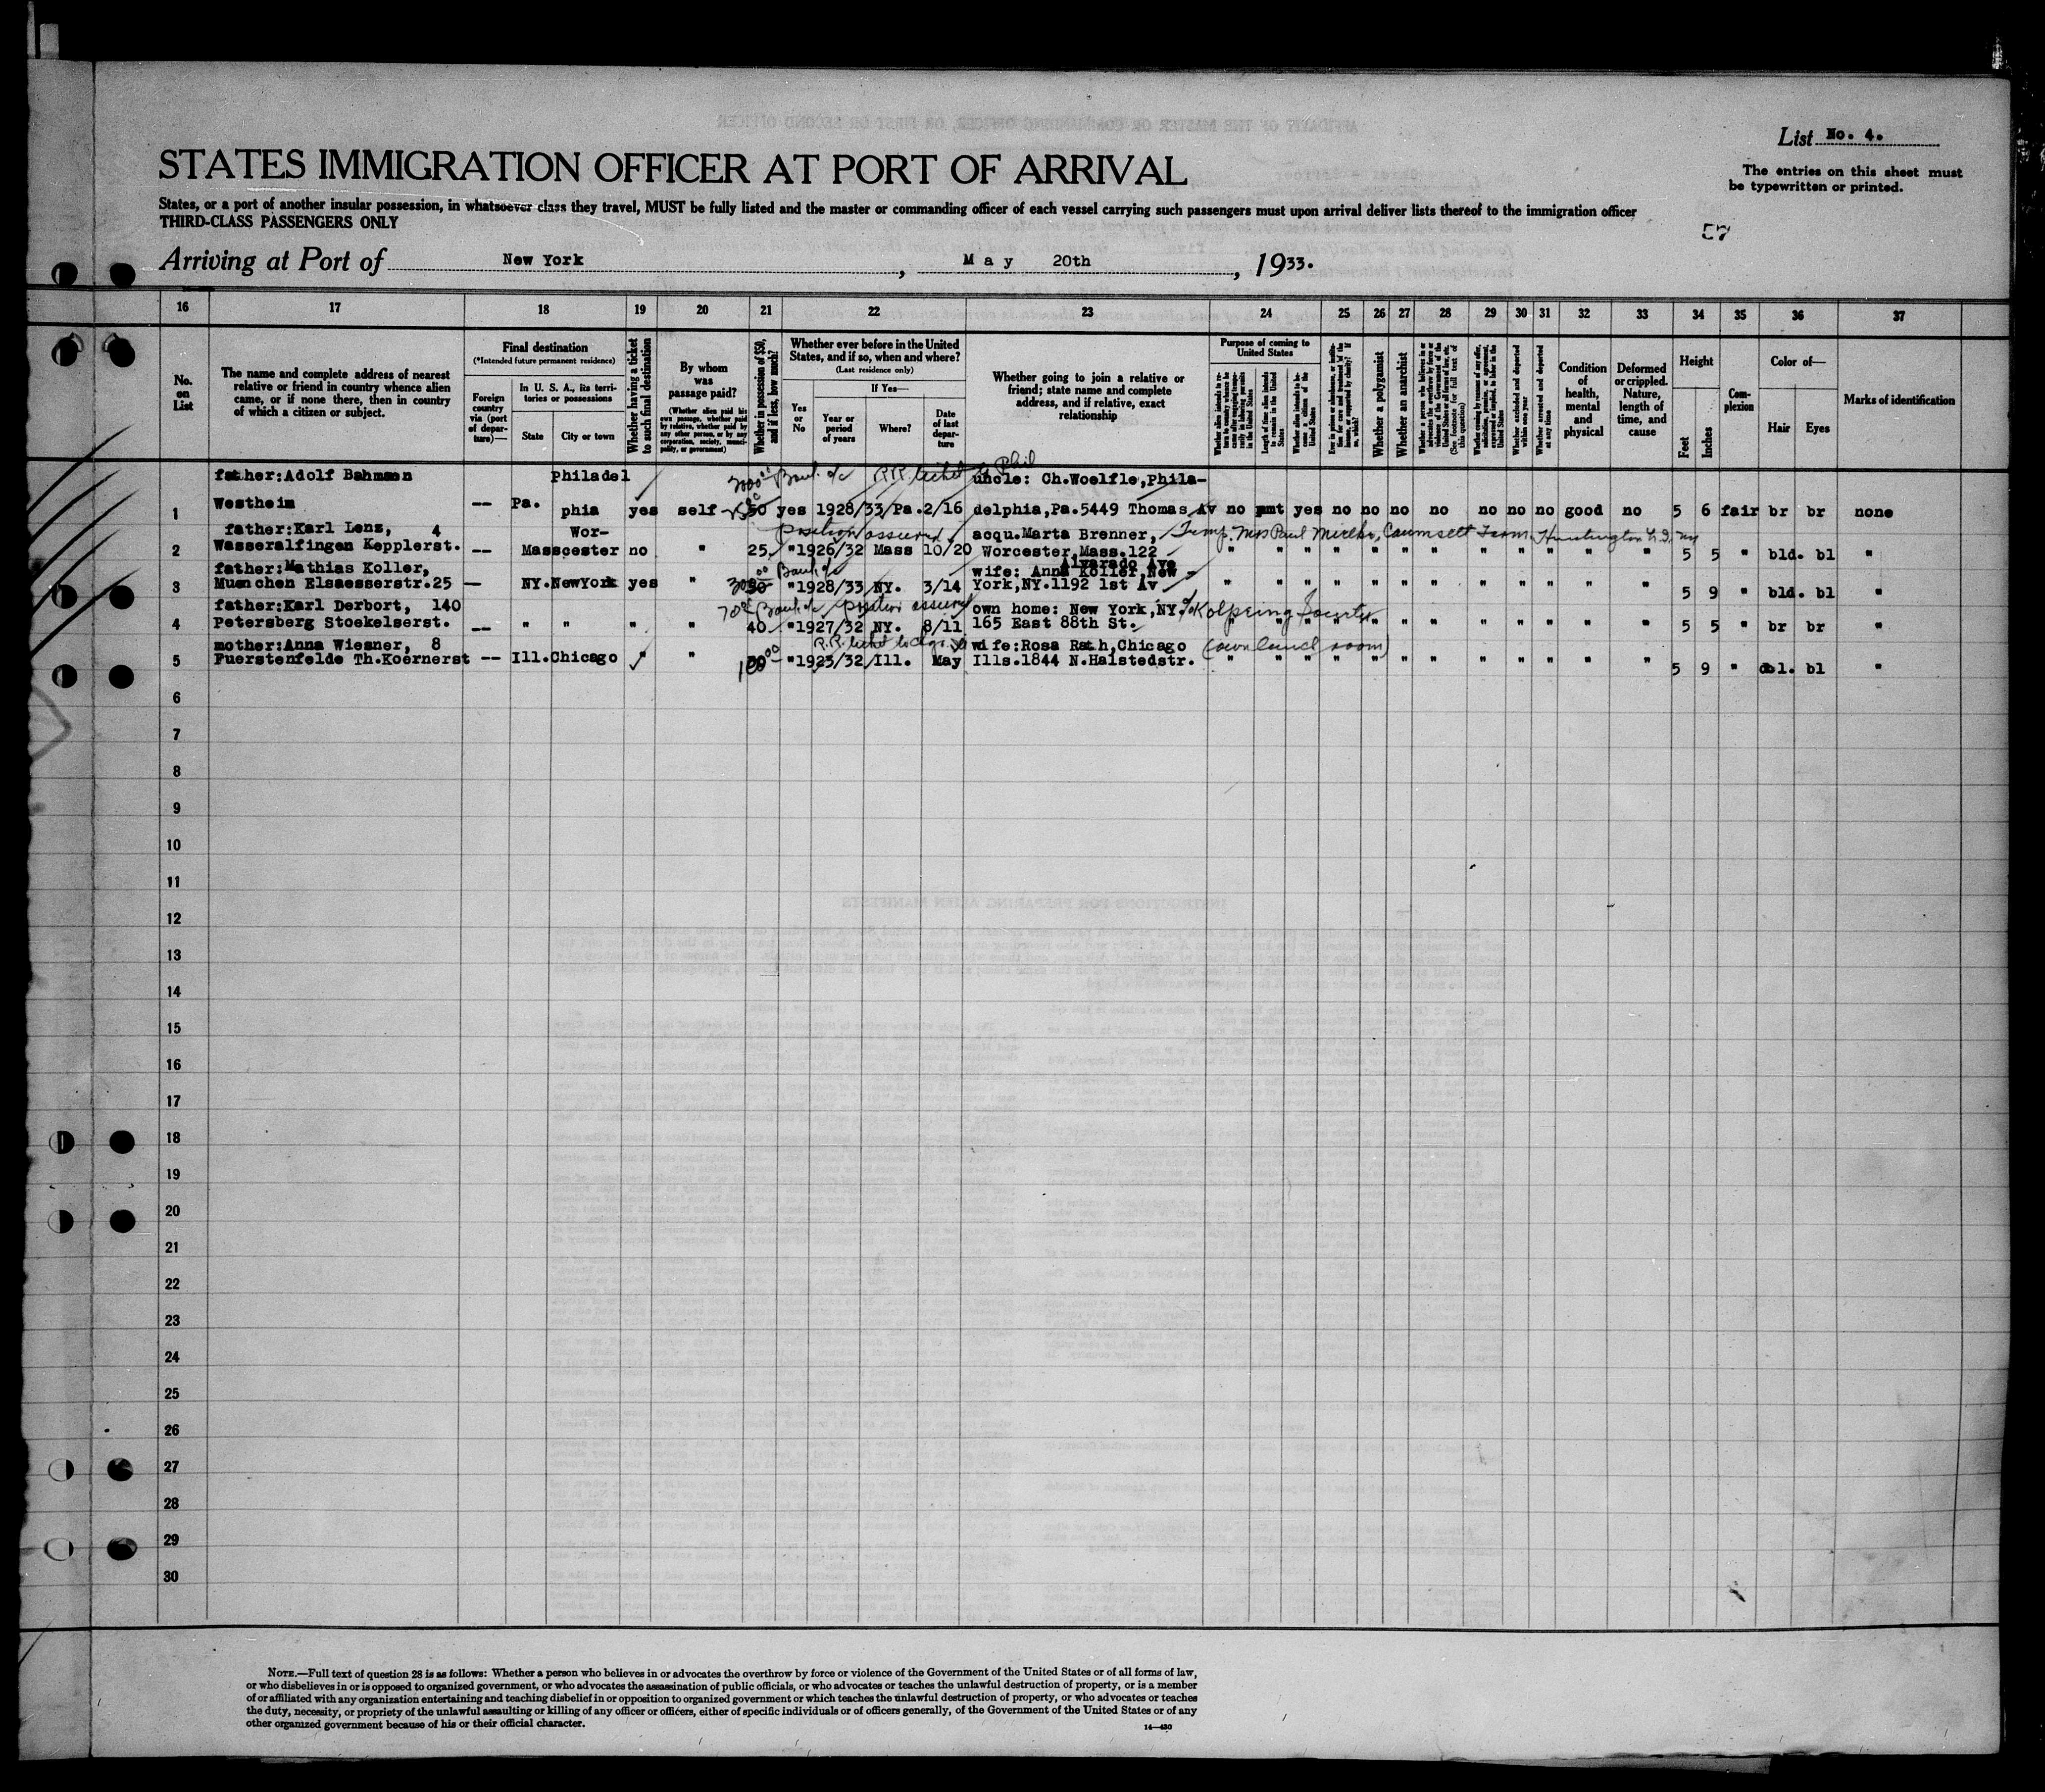 List No. 4.
STATES IMMIGRATION OFFICER AT PORT OF ARRIVAL
The entries on this sheet must
be typewritten or printed.
States, or a port of another insular possession, in whatsoever class they travel, MUST be fully listed and the master or commanding officer of each vessel carrying such passengers must upon arrival deliver lists thereof to the immigration officer
THIRD-CLASS PASSENGERS ONLY
Arriving at Port of New York, May 20th, 1933.
16 17 18 19 20 21 22 23 24 25 26 27 28 29 30 31 32 33 34 35 36 37
No. on List
The name and complete address of nearest
relative or friend in country whence alien
came, or if none there, then in country
of which a citizen or subject.
Final destination
(*Intended future permanent residence)
Foreign country via (port of departure)—
In U. S. A., its territories or possessions
State
City or town
Whether having a ticket to such final destination
By whom was passage paid?
(Whether alien paid his own passage, whether paid by relative, whether paid by any other person, or by any corporation, society, municipality, or government)
Whether in possession of $50, and if less, how much?
Whether ever before in the United
States, and if so, when and where?
(Last residence only)
Yes or No
If Yes—
Year or period of years
Where?
Date of last departure
Whether going to join a relative or
friend; state name and complete
address, and if relative, exact
relationship
Purpose of coming to United States
Length of time alien intends to remain in the United States
Whether alien intends to become a citizen of the United States
Whether a polygamist
Whether an anarchist
Whether excluded and deported within one year
Whether arrested and deported at any time
Condition of health, mental and physical
Deformed or crippled. Nature, length of time, and cause
Height
Feet
Inches
Complexion
Color of—
Hair
Eyes
Marks of identification
father:Adolf Bahmann Philadel uncle: Ch.Woelfle,Phila-
1 Westheim -- Pa. phia yes self 50 yes 1928/33 Pa. 2/16 delphia,Pa.5449 Thomas Av no pmt yes no no no no no no no good no 5 6 fair br br none
father:Karl Lenz, 4 Wor- position assured acqu.Marta Brenner,
2 Wasseralfingen Kepplerst. -- Masscester no " 25. " 1926/32 Mass 10/20 Worcester,Mass.122 " " " " " " " " " " " " 5 5 " bld. bl "
Alvarado Ave
father:Mathias Koller, wife: Anna Koller,New
3 Muenchen Elsaesserstr.25 -- NY.NewYork yes " " 1928/33 NY. 3/14 York,NY.1192 1st Av " " " " " " " " " " " " 5 9 " bld. bl "
father:Karl Derbort, 140 position assured own home: New York,NY.
4 Petersberg Stoekelserst. -- " " " " 40. " 1927/32 NY. 8/11 165 East 88th St. " " " " " " " " " " " " 5 5 " br br "
mother:Anna Wiesner, 8 wife:Rosa Rath,Chicago (own lunch room)
5 Fuerstenfelde Th.Koernerst -- Ill.Chicago " " " 1923/32 Ill. May Ills.1844 N.Halstedstr. " " " " " " " " " " " " 5 9 " dbl. bl "
6
7
8
9
10
11
12
13
14
15
16
17
18
19
20
21
22
23
24
25
26
27
28
29
30
NOTE.—Full text of question 28 is as follows: Whether a person who believes in or advocates the overthrow by force or violence of the Government of the United States or of all forms of law,
or who disbelieves in or is opposed to organized government, or who advocates the assassination of public officials, or who advocates or teaches the unlawful destruction of property, or is a member
of or affiliated with any organization entertaining and teaching disbelief in or opposition to organized government or which teaches the unlawful destruction of property, or who advocates or teaches
the duty, necessity, or propriety of the unlawful assaulting or killing of any officer or officers, either of specific individuals or of officers generally, of the Government of the United States or of any
other organized government because of his or their official character.
14—430